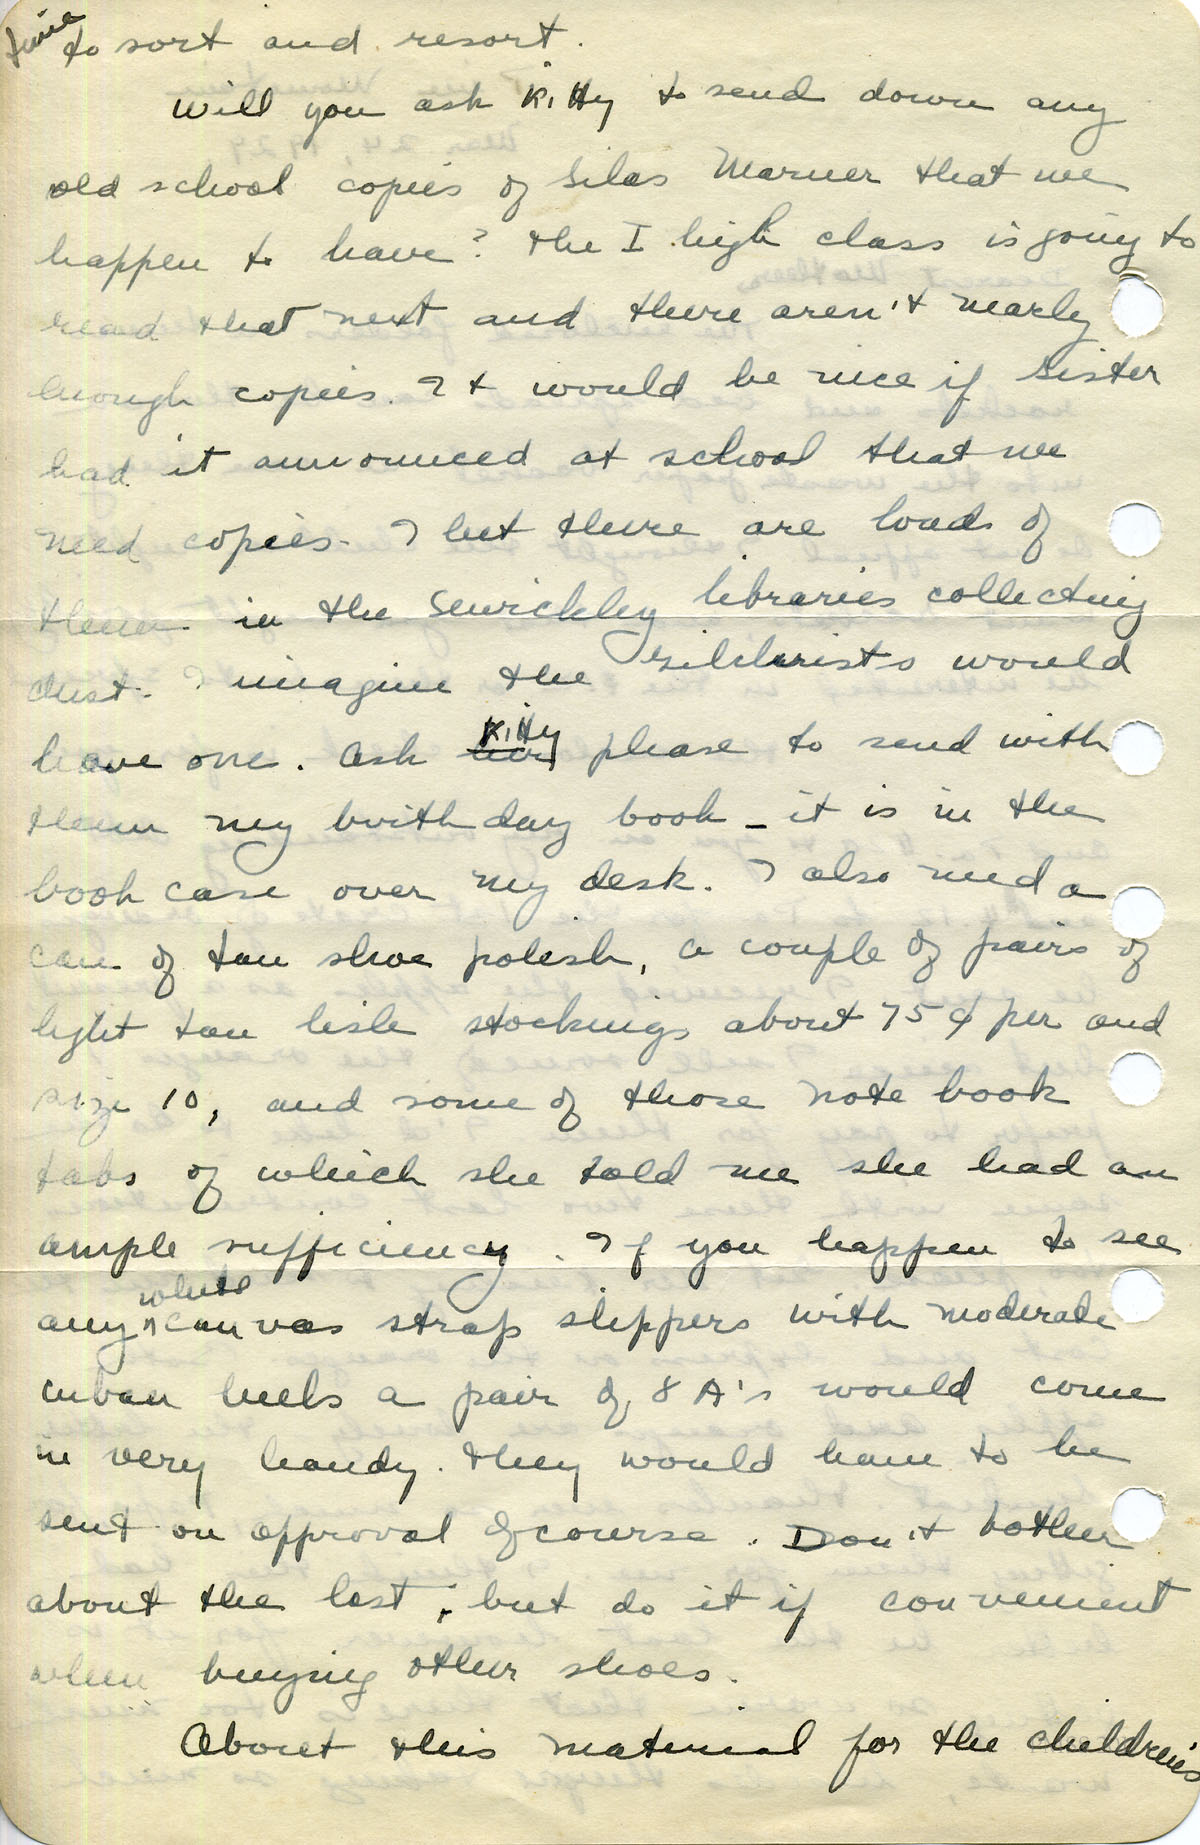 time to sort and resort.
Will you ask Kitty to send down any
old school copies of Silas Marner that we
happen to have? The I high class is going to
read that next and there aren't nearly
enough copies. It would be nice if Sister
had it announced at school that we
need copies. I bet there are loads of
them in the Sewickley libraries collecting
dust. I imagine the Gilchrists would
have one. Ask Kitty please to send with
them my birthday book - it is in the
book case over my desk. I also need a
can of tan shoe polish, a couple of pairs of
light tan lisle stockings about 75¢ per and
size 10, and some of those note book
tabs of which she told me she had an
ample sufficiency. If you happen to see
any white canvas strap slippers with moderate
cuban heels a pair of 8 A's would come
in very handy. They would have to be
sent on approval of course. Don't bother
about the last, but do it if convenient
when buying other shoes.
About this material for the children's